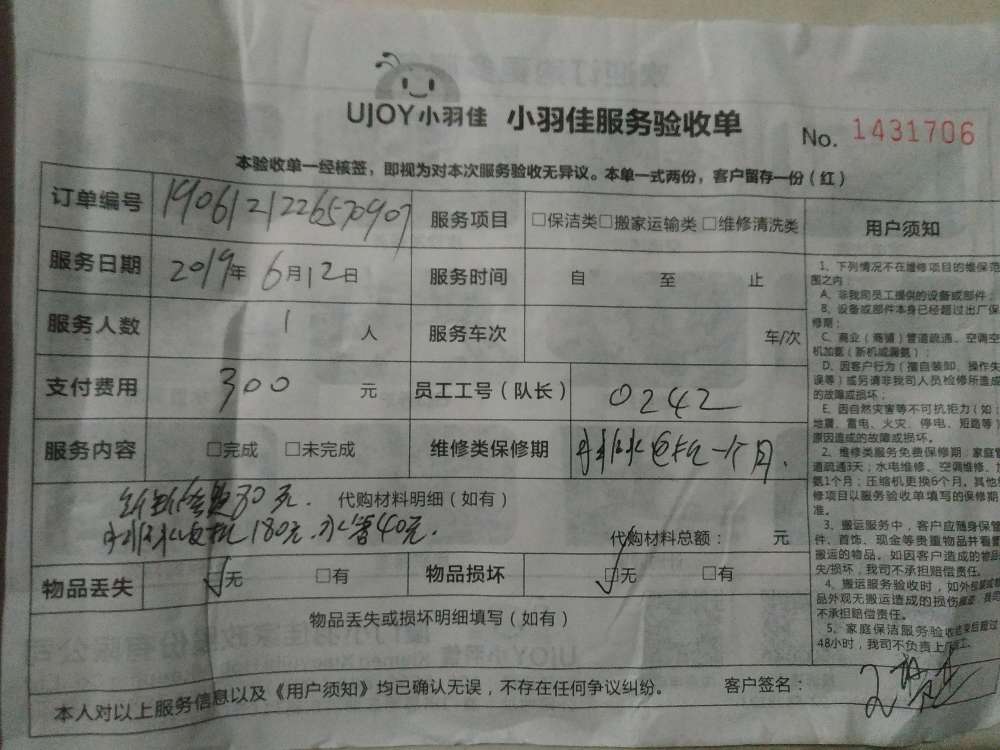 UJOY小羽佳 小羽佳服务验收单 No. 1431706
本验收单一经核签，即视为对本次服务验收无异议。本单一式两份，客户留存一份（红）
订单编号 1906121226570907 服务项目 □保洁类□搬家运输类 □维修清洗类
服务日期 2019年 6月12日 服务时间 自 至 止
服务人数 1 人 服务车次 车/次
支付费用 300 元 员工工号（队长） 0242
服务内容 □完成 □未完成 维修类保修期 一个月.
80元. 代购材料明细（如有）
180元. 水管40元. 代购材料总额： 元
物品丢失 □无 □有 物品损坏 □无 □有
物品丢失或损坏明细填写（如有）
本人对以上服务信息以及《用户须知》均已确认无误，不存在任何争议纠纷。 客户签名：
用户须知
1、下列情况不在维修项目的维保范
围之内：
A、非我司员工提供的设备或部件；
B、设备或部件本身已经超过出厂保
修期；
C、商业（商铺）管道疏通、空调空
机加氨（新机或漏氨）；
D、因客户行为（擅自装卸、操作失
误等）或另请非我司人员检修所造成
的故障或损坏；
E、因自然灾害等不可抗拒力（如：
地震、雷电、火灾、停电、短路等）
原因造成的故障或损坏。
2、维修类服务免费保修期：家庭管
道疏通3天；水电维修、空调维修、加
氨1个月；压缩机更换6个月。其他维
修项目以服务验收单填写的保修期
准。
3、搬运服务中，客户应随身保管
件、首饰、现金等贵重物品并看管
搬运的物品。如因客户造成的物品
失/损坏，我司不承担赔偿责任。
4、搬运服务验收时，如外包装或
品外观无搬运造成的损伤
不承担赔偿责任。
5、家庭保洁服务验收结束后超过
48小时，我司不负责上